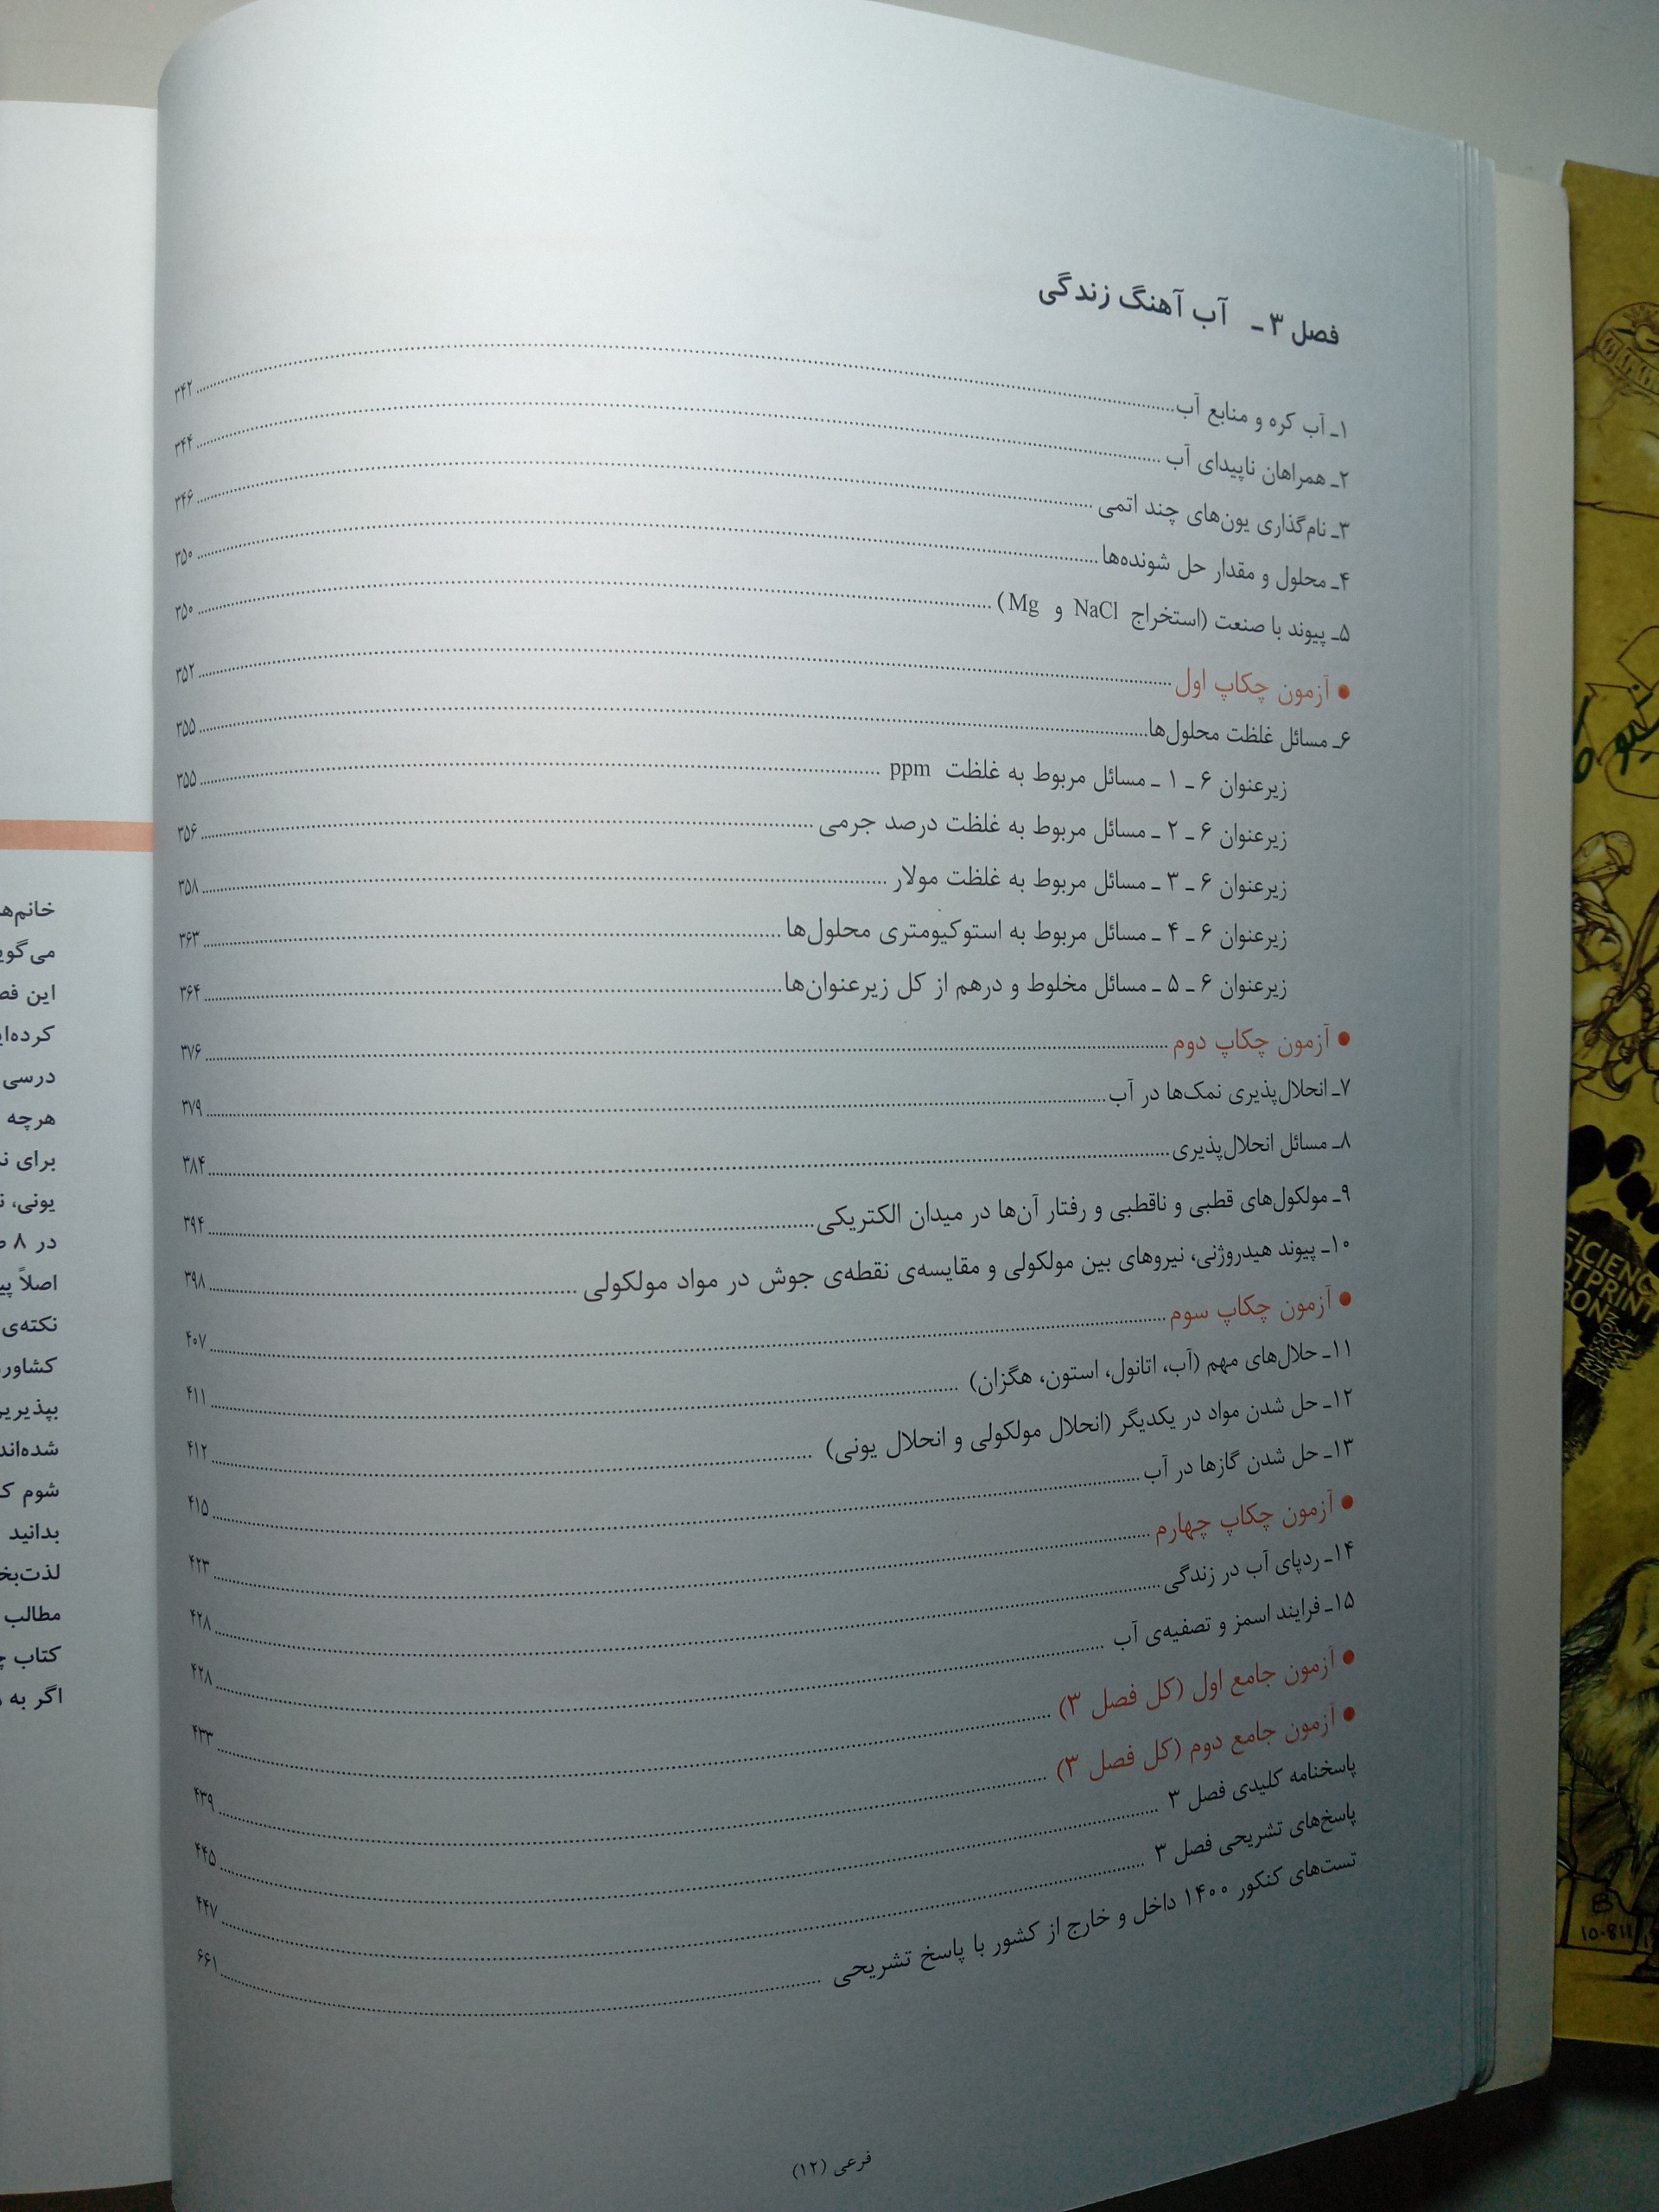 فصل ۳ ـ آب آهنگ زندگی
۱ـ آب کره و منابع آب ........ ۳۴۲
۲ـ همراهان ناپیدای آب ........ ۳۴۴
۳ـ نام‌گذاری یون‌های چند اتمی ........ ۳۴۶
۴ـ محلول و مقدار حل شونده‌ها ........ ۳۵۰
۵ـ پیوند با صنعت (استخراج NaCl و Mg) ........ ۳۵۰
● آزمون چکاپ اول ........ ۳۵۲
۶ـ مسائل غلظت محلول‌ها ........ ۳۵۵
زیرعنوان ۶ ـ ۱ ـ مسائل مربوط به غلظت ppm ........ ۳۵۵
زیرعنوان ۶ ـ ۲ ـ مسائل مربوط به غلظت درصد جرمی ........ ۳۵۶
زیرعنوان ۶ ـ ۳ ـ مسائل مربوط به غلظت مولار ........ ۳۵۸
زیرعنوان ۶ ـ ۴ ـ مسائل مربوط به استوکیومتری محلول‌ها ........ ۳۶۳
زیرعنوان ۶ ـ ۵ ـ مسائل مخلوط و درهم از کل زیرعنوان‌ها ........ ۳۶۴
● آزمون چکاپ دوم ........ ۳۷۶
۷ـ انحلال‌پذیری نمک‌ها در آب ........ ۳۷۹
۸ـ مسائل انحلال‌پذیری ........ ۳۸۴
۹ـ مولکول‌های قطبی و ناقطبی و رفتار آن‌ها در میدان الکتریکی ........ ۳۹۴
۱۰ـ پیوند هیدروژنی، نیروهای بین مولکولی و مقایسه‌ی نقطه‌ی جوش در مواد مولکولی ........ ۳۹۸
● آزمون چکاپ سوم ........ ۴۰۷
۱۱ـ حلال‌های مهم (آب، اتانول، استون، هگزان) ........ ۴۱۱
۱۲ـ حل شدن مواد در یکدیگر (انحلال مولکولی و انحلال یونی) ........ ۴۱۲
۱۳ـ حل شدن گازها در آب ........ ۴۱۵
● آزمون چکاپ چهارم ........ ۴۲۳
۱۴ـ ردپای آب در زندگی ........ ۴۲۸
۱۵ـ فرایند اسمز و تصفیه‌ی آب ........ ۴۲۸
● آزمون جامع اول (کل فصل ۳) ........ ۴۳۳
● آزمون جامع دوم (کل فصل ۳) ........ ۴۳۹
پاسخنامه کلیدی فصل ۳ ........ ۴۴۵
پاسخ‌های تشریحی فصل ۳ ........ ۴۴۷
تست‌های کنکور ۱۴۰۰ داخل و خارج از کشور با پاسخ تشریحی ........ ۶۶۱
فرعی (۱۲)
این
درسی
هرچه
برای
یونی،
در ۸
اصلاً
نکته‌ی
شوم
بدانید
مطالب
کتاب
اگر به